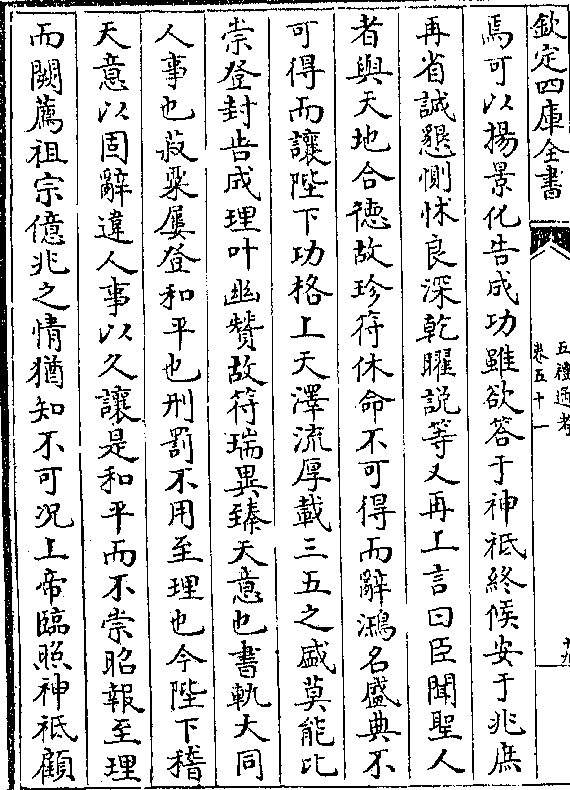 欽定四庫全書
五禮通考
卷五十一
十九
焉可以揚景化告成功雖欲答于神祗終候安于兆庶
再省誠懇惻怵良深乾曜説等又再上言曰臣聞聖人
者與天地合德故珍符休命不可得而辭鴻名盛典不
可得而讓陛下功格上天澤流厚載三五之盛莫能比
崇登封告成理叶幽贊故符瑞異臻天意也書軌大同
人事也菽粟屢登和平也刑罰不用至理也今陛下稽
天意以固辭違人事以久讓是和平而不崇昭報至理
而闕薦祖宗億兆之情猶知不可况上帝臨照神祗顧